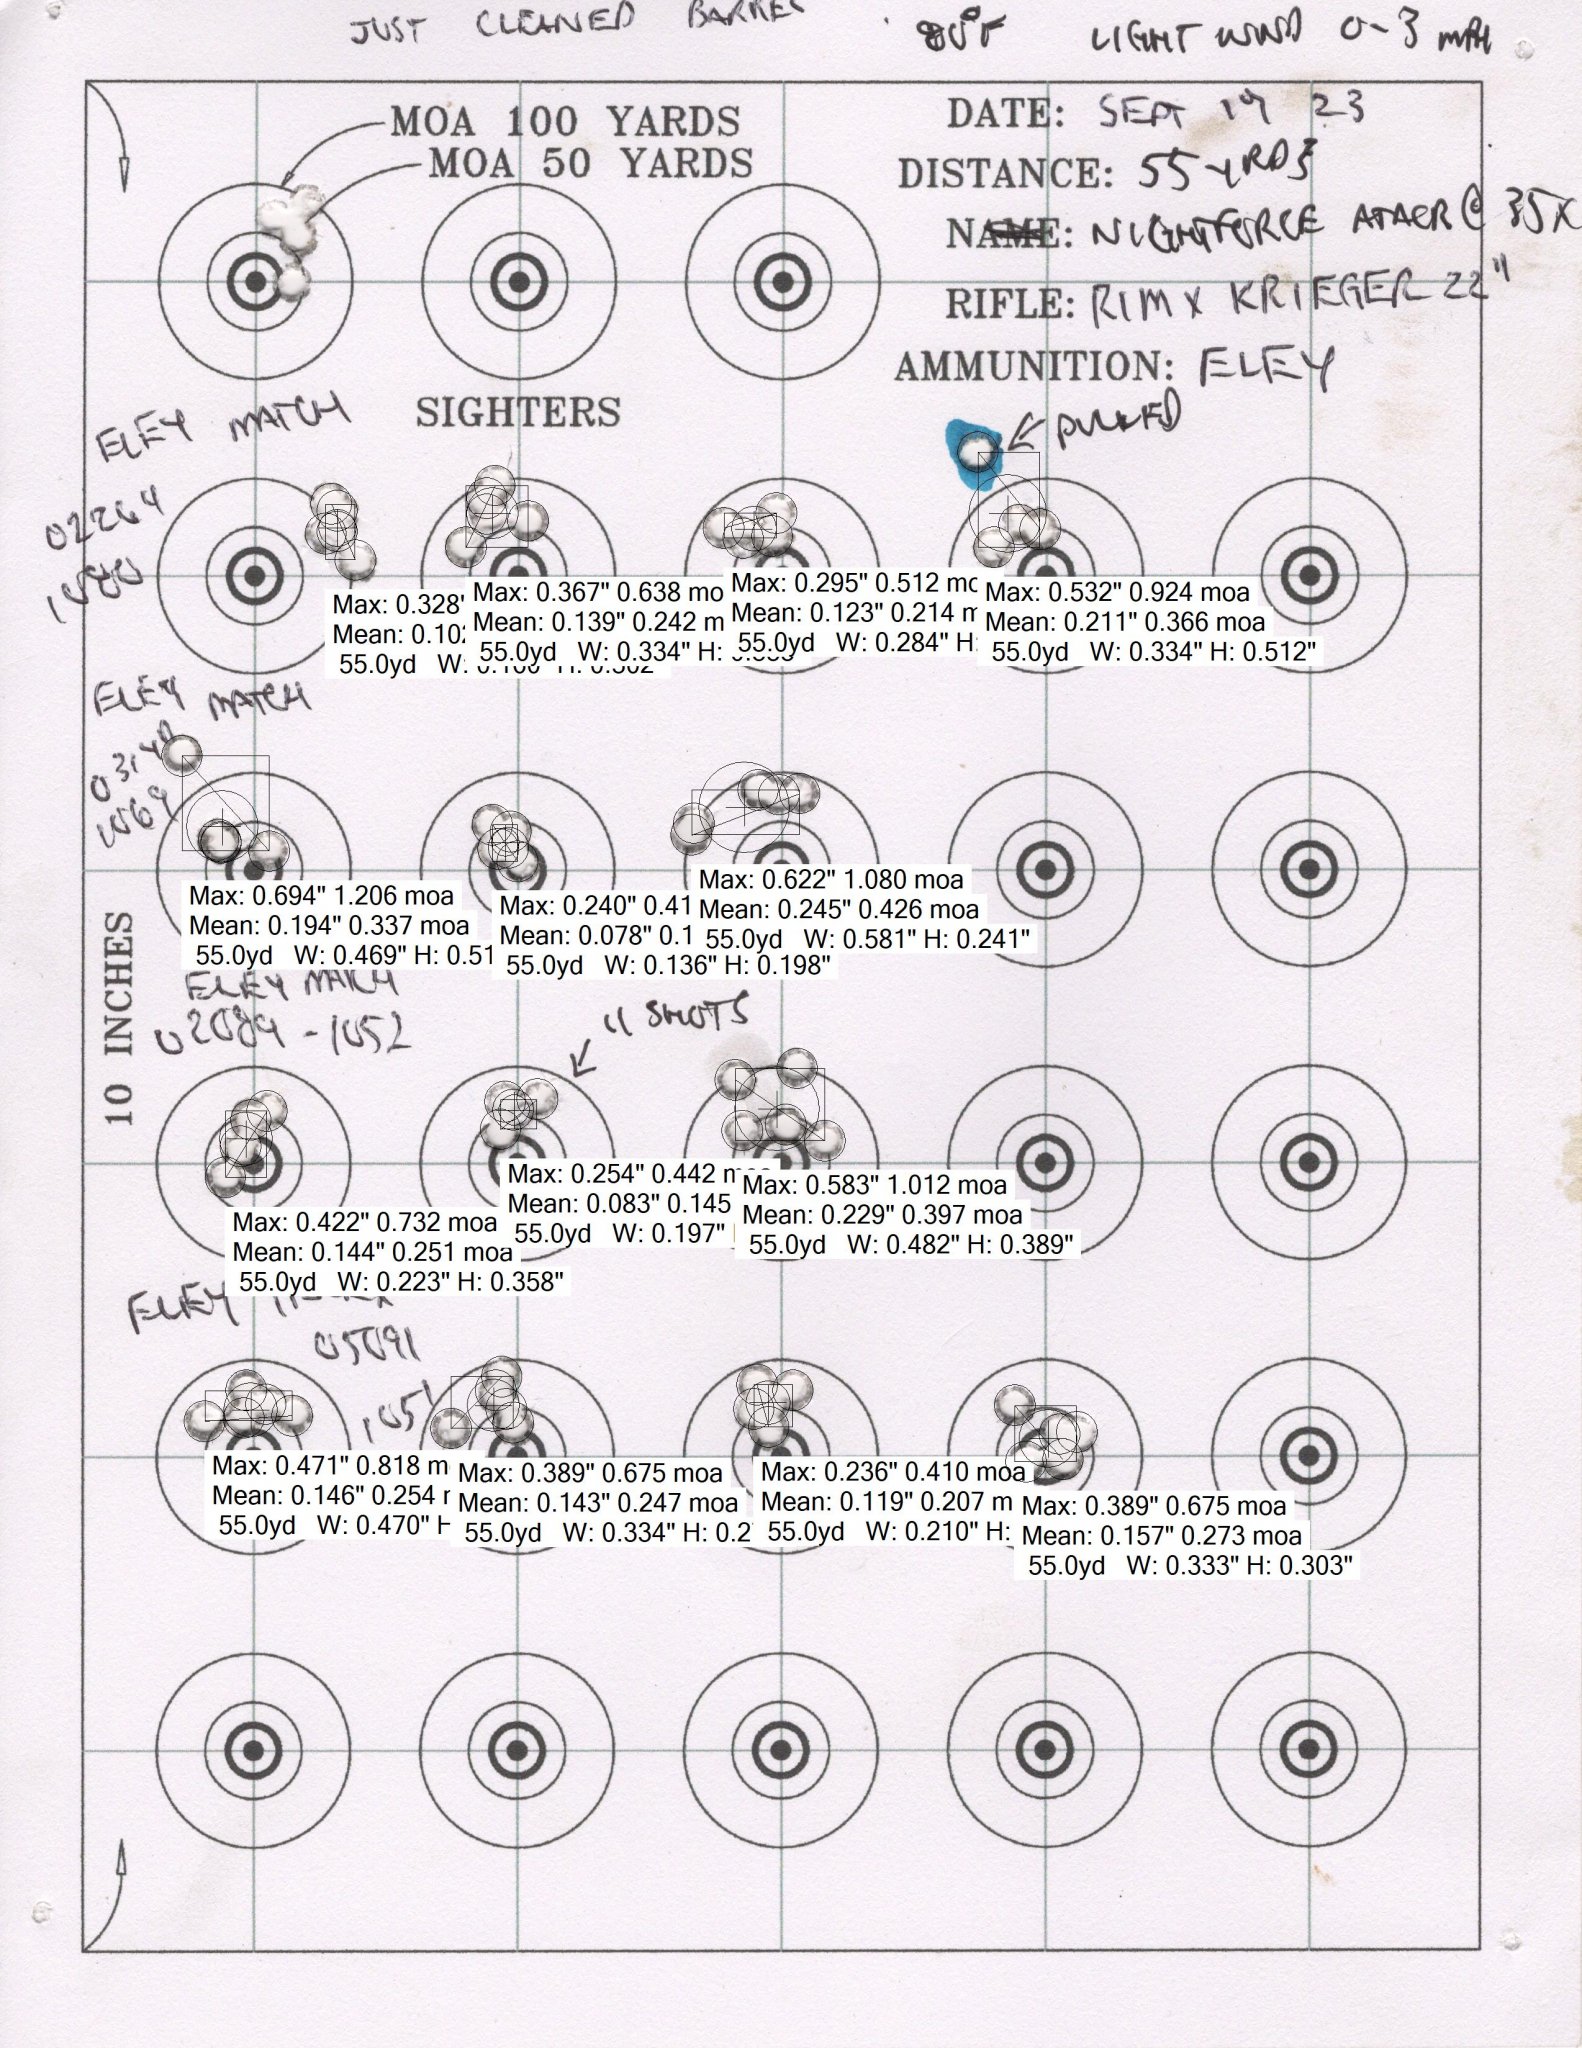 JUST CLEANED BARREL
80°F LIGHT WIND 0-3 mPH
MOA 100 YARDS
MOA 50 YARDS
DATE: SEPT 19 23
DISTANCE: 55 YRDS
NAME: NIGHTFORCE ATACR @ 35X
RIFLE: RIMX KRIEGER 22"
AMMUNITION: ELEY
SIGHTERS
ELEY MATCH
PULLED
02264
1080
Max: 0.328"
Mean: 0.102
55.0yd W: 0.169" H: 0.302"
Max: 0.367" 0.638 mo
Mean: 0.139" 0.242 m
55.0yd W: 0.334" H:
Max: 0.295" 0.512 mo
Mean: 0.123" 0.214 m
55.0yd W: 0.284" H:
Max: 0.532" 0.924 moa
Mean: 0.211" 0.366 moa
55.0yd W: 0.334" H: 0.512"
ELEY MATCH
03140
1069
Max: 0.694" 1.206 moa
Mean: 0.194" 0.337 moa
55.0yd W: 0.469" H: 0.51
Max: 0.240" 0.41
Mean: 0.078" 0.1
55.0yd W: 0.136" H: 0.198"
Max: 0.622" 1.080 moa
Mean: 0.245" 0.426 moa
55.0yd W: 0.581" H: 0.241"
10 INCHES
ELEY MATCH
02089 - 1052
11 SHOTS
Max: 0.422" 0.732 moa
Mean: 0.144" 0.251 moa
55.0yd W: 0.223" H: 0.358"
Max: 0.254" 0.442 m
Mean: 0.083" 0.145
55.0yd W: 0.197"
Max: 0.583" 1.012 moa
Mean: 0.229" 0.397 moa
55.0yd W: 0.482" H: 0.389"
ELEY
05091
1051
Max: 0.471" 0.818 m
Mean: 0.146" 0.254
55.0yd W: 0.470" H
Max: 0.389" 0.675 moa
Mean: 0.143" 0.247 moa
55.0yd W: 0.334" H: 0.2
Max: 0.236" 0.410 moa
Mean: 0.119" 0.207 m
55.0yd W: 0.210" H:
Max: 0.389" 0.675 moa
Mean: 0.157" 0.273 moa
55.0yd W: 0.333" H: 0.303"